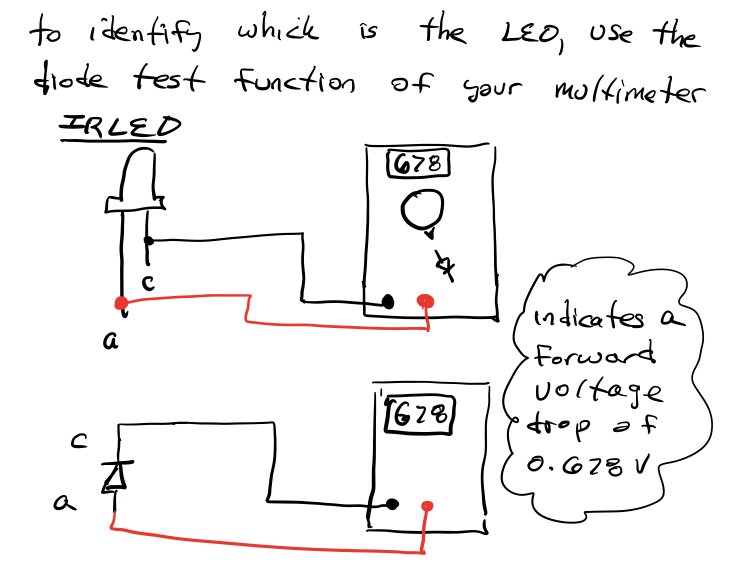 to identify which is the LED, use the
diode test function of your multimeter
IRLED
678
c
a
indicates a
forward
voltage
drop of
0.678 V
678
c
a